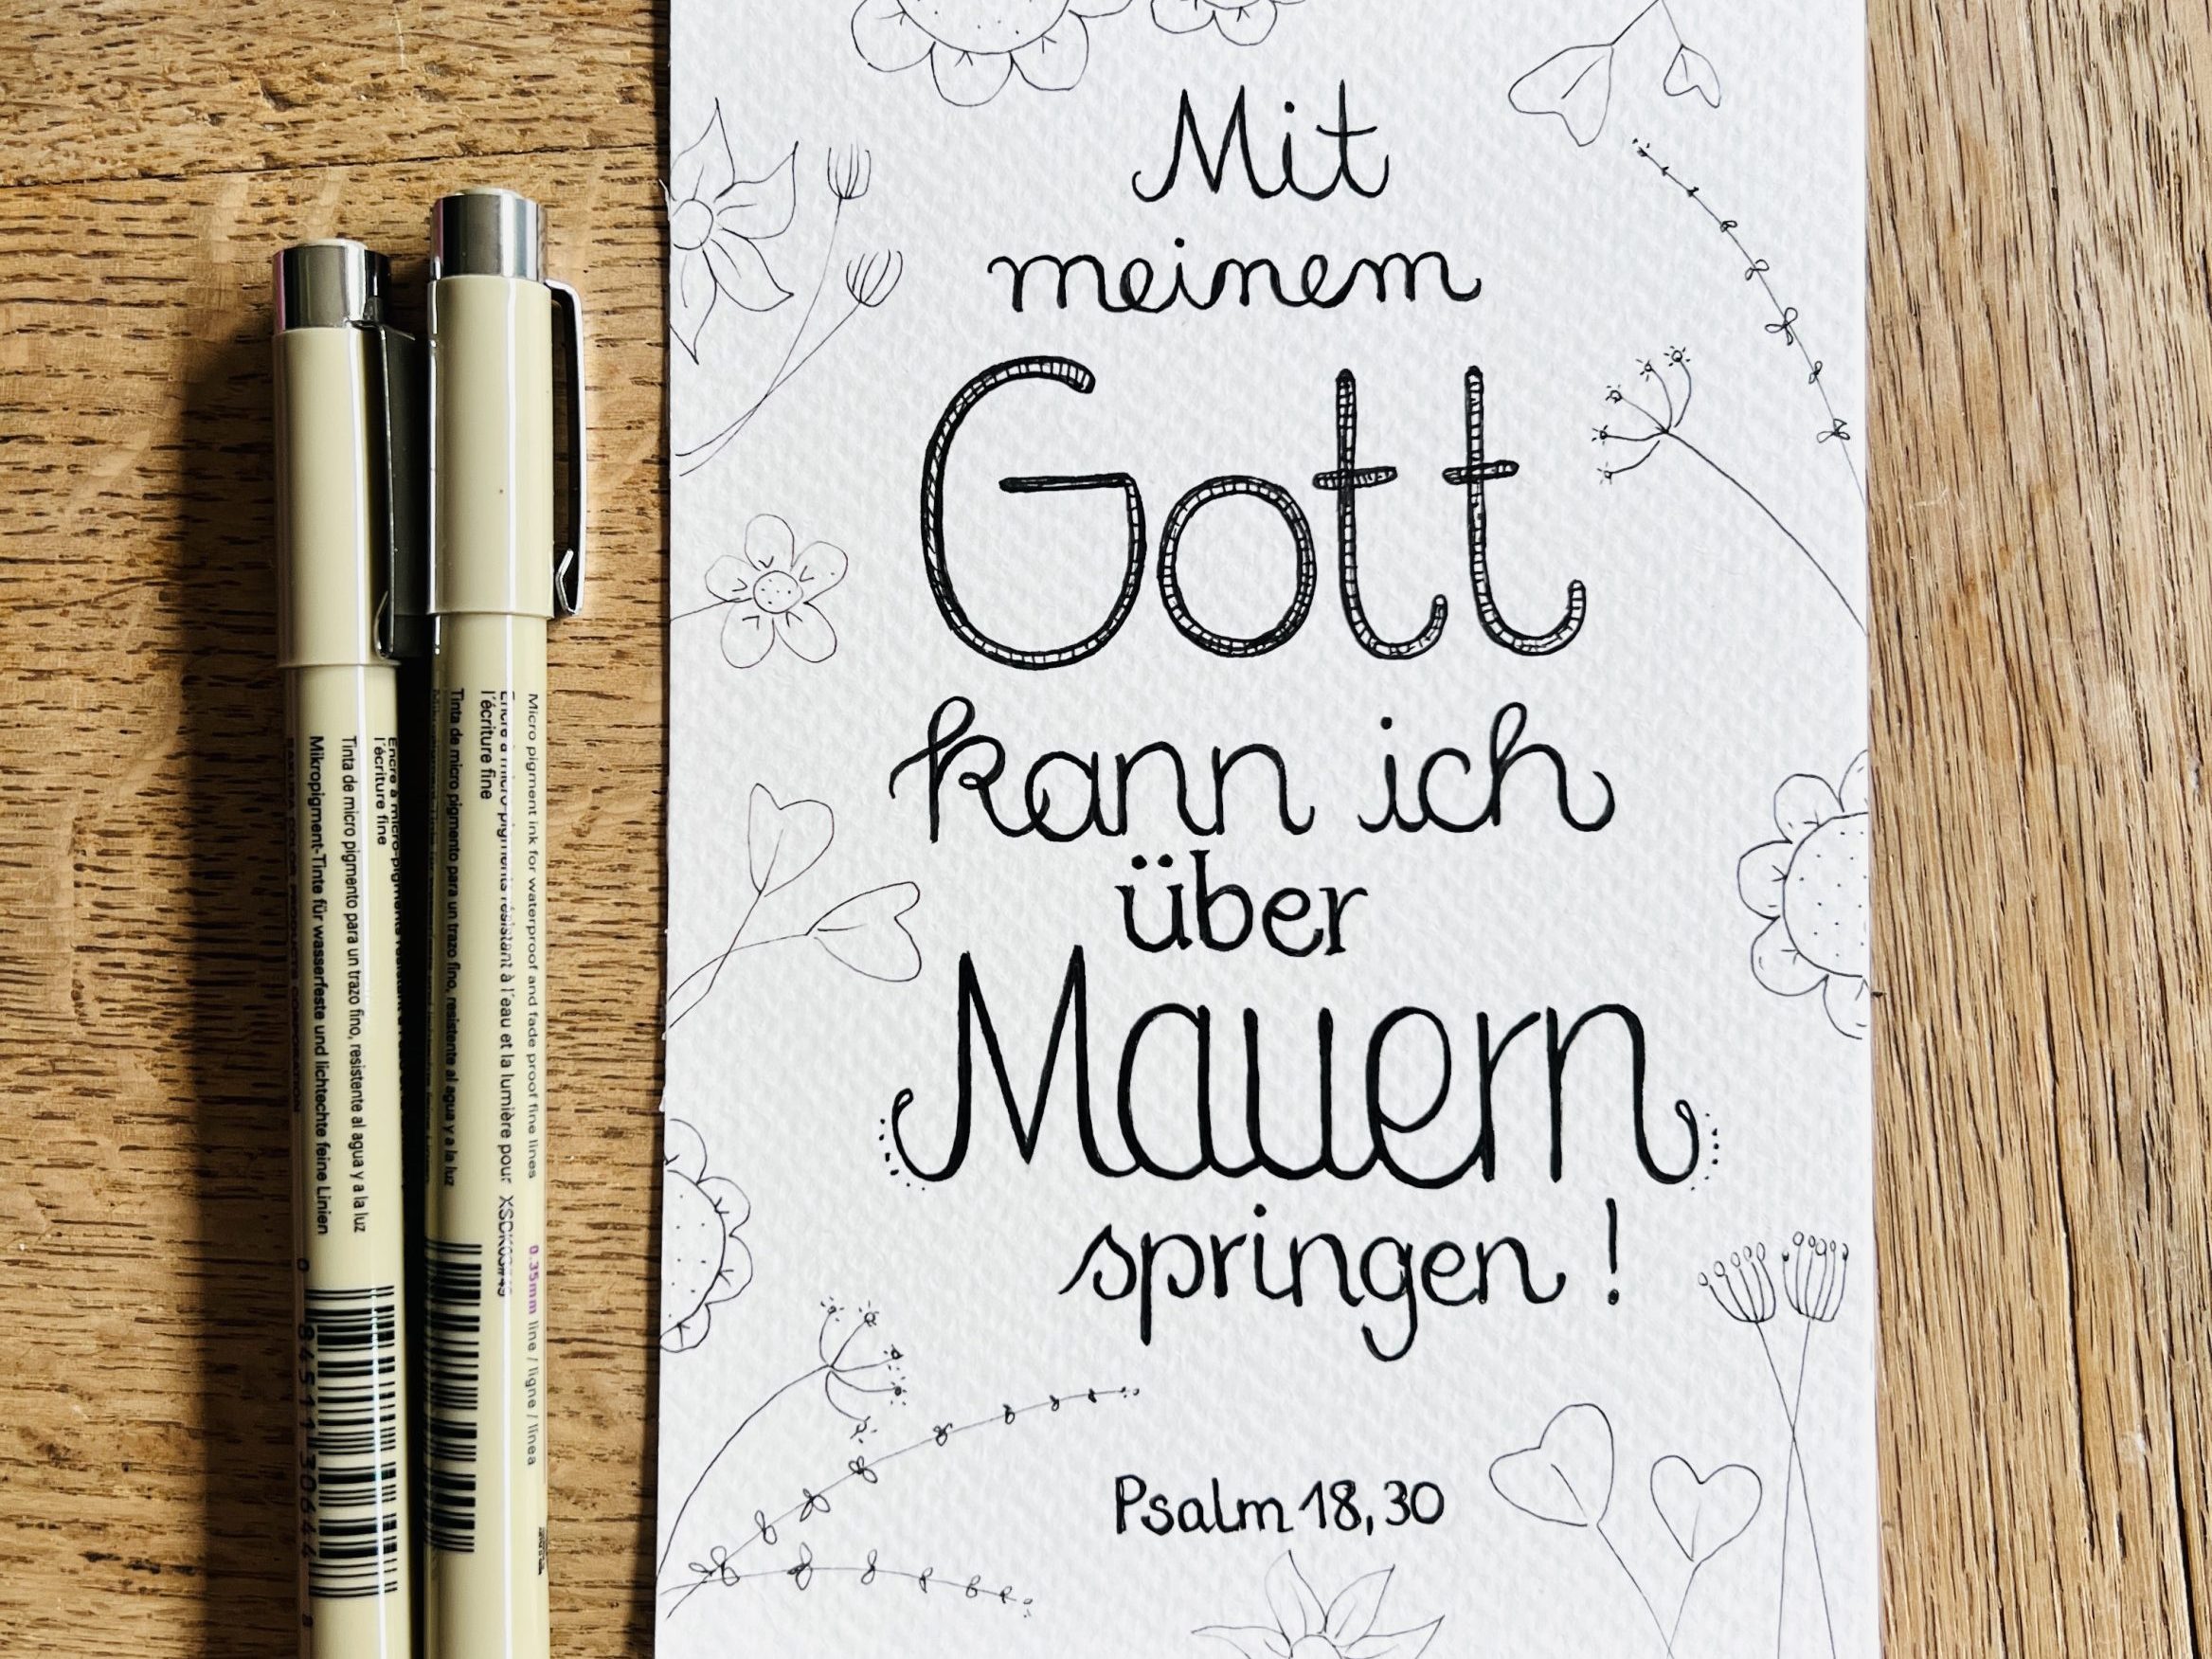 Mit
meinem
Gott
kann ich
über
Mauern
springen !
Psalm 18,30
Micro pigment ink for waterproof and fade proof fine lines
0.35mm line / ligne / línea
Encre à micro-pigments résistant à l'eau et la lumière pour
l'écriture fine
Tinta de micro pigmento para un trazo fino, resistente al agua y a la luz
l'écriture fine
Tinta de micro pigmento para un trazo fino, resistente al agua y a la luz
Mikropigment-Tinte für wasserfeste und lichtechte feine Linien
SAKURA COLOR PRODUCTS CORPORATION